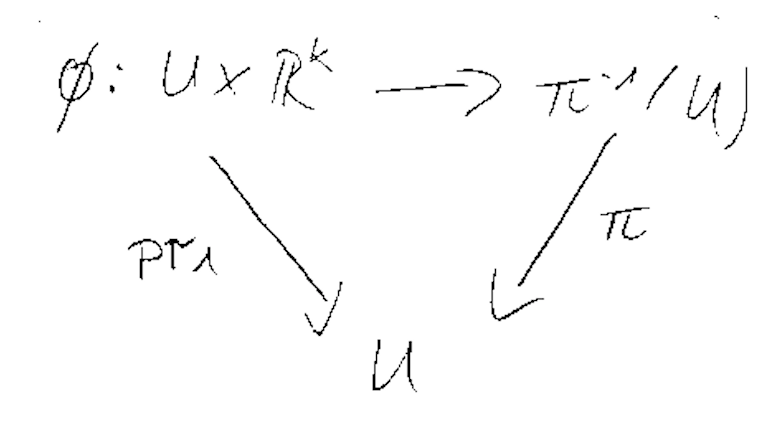 ϕ: U × ℝᵏ → π⁻¹(U)
pr₁ π
U